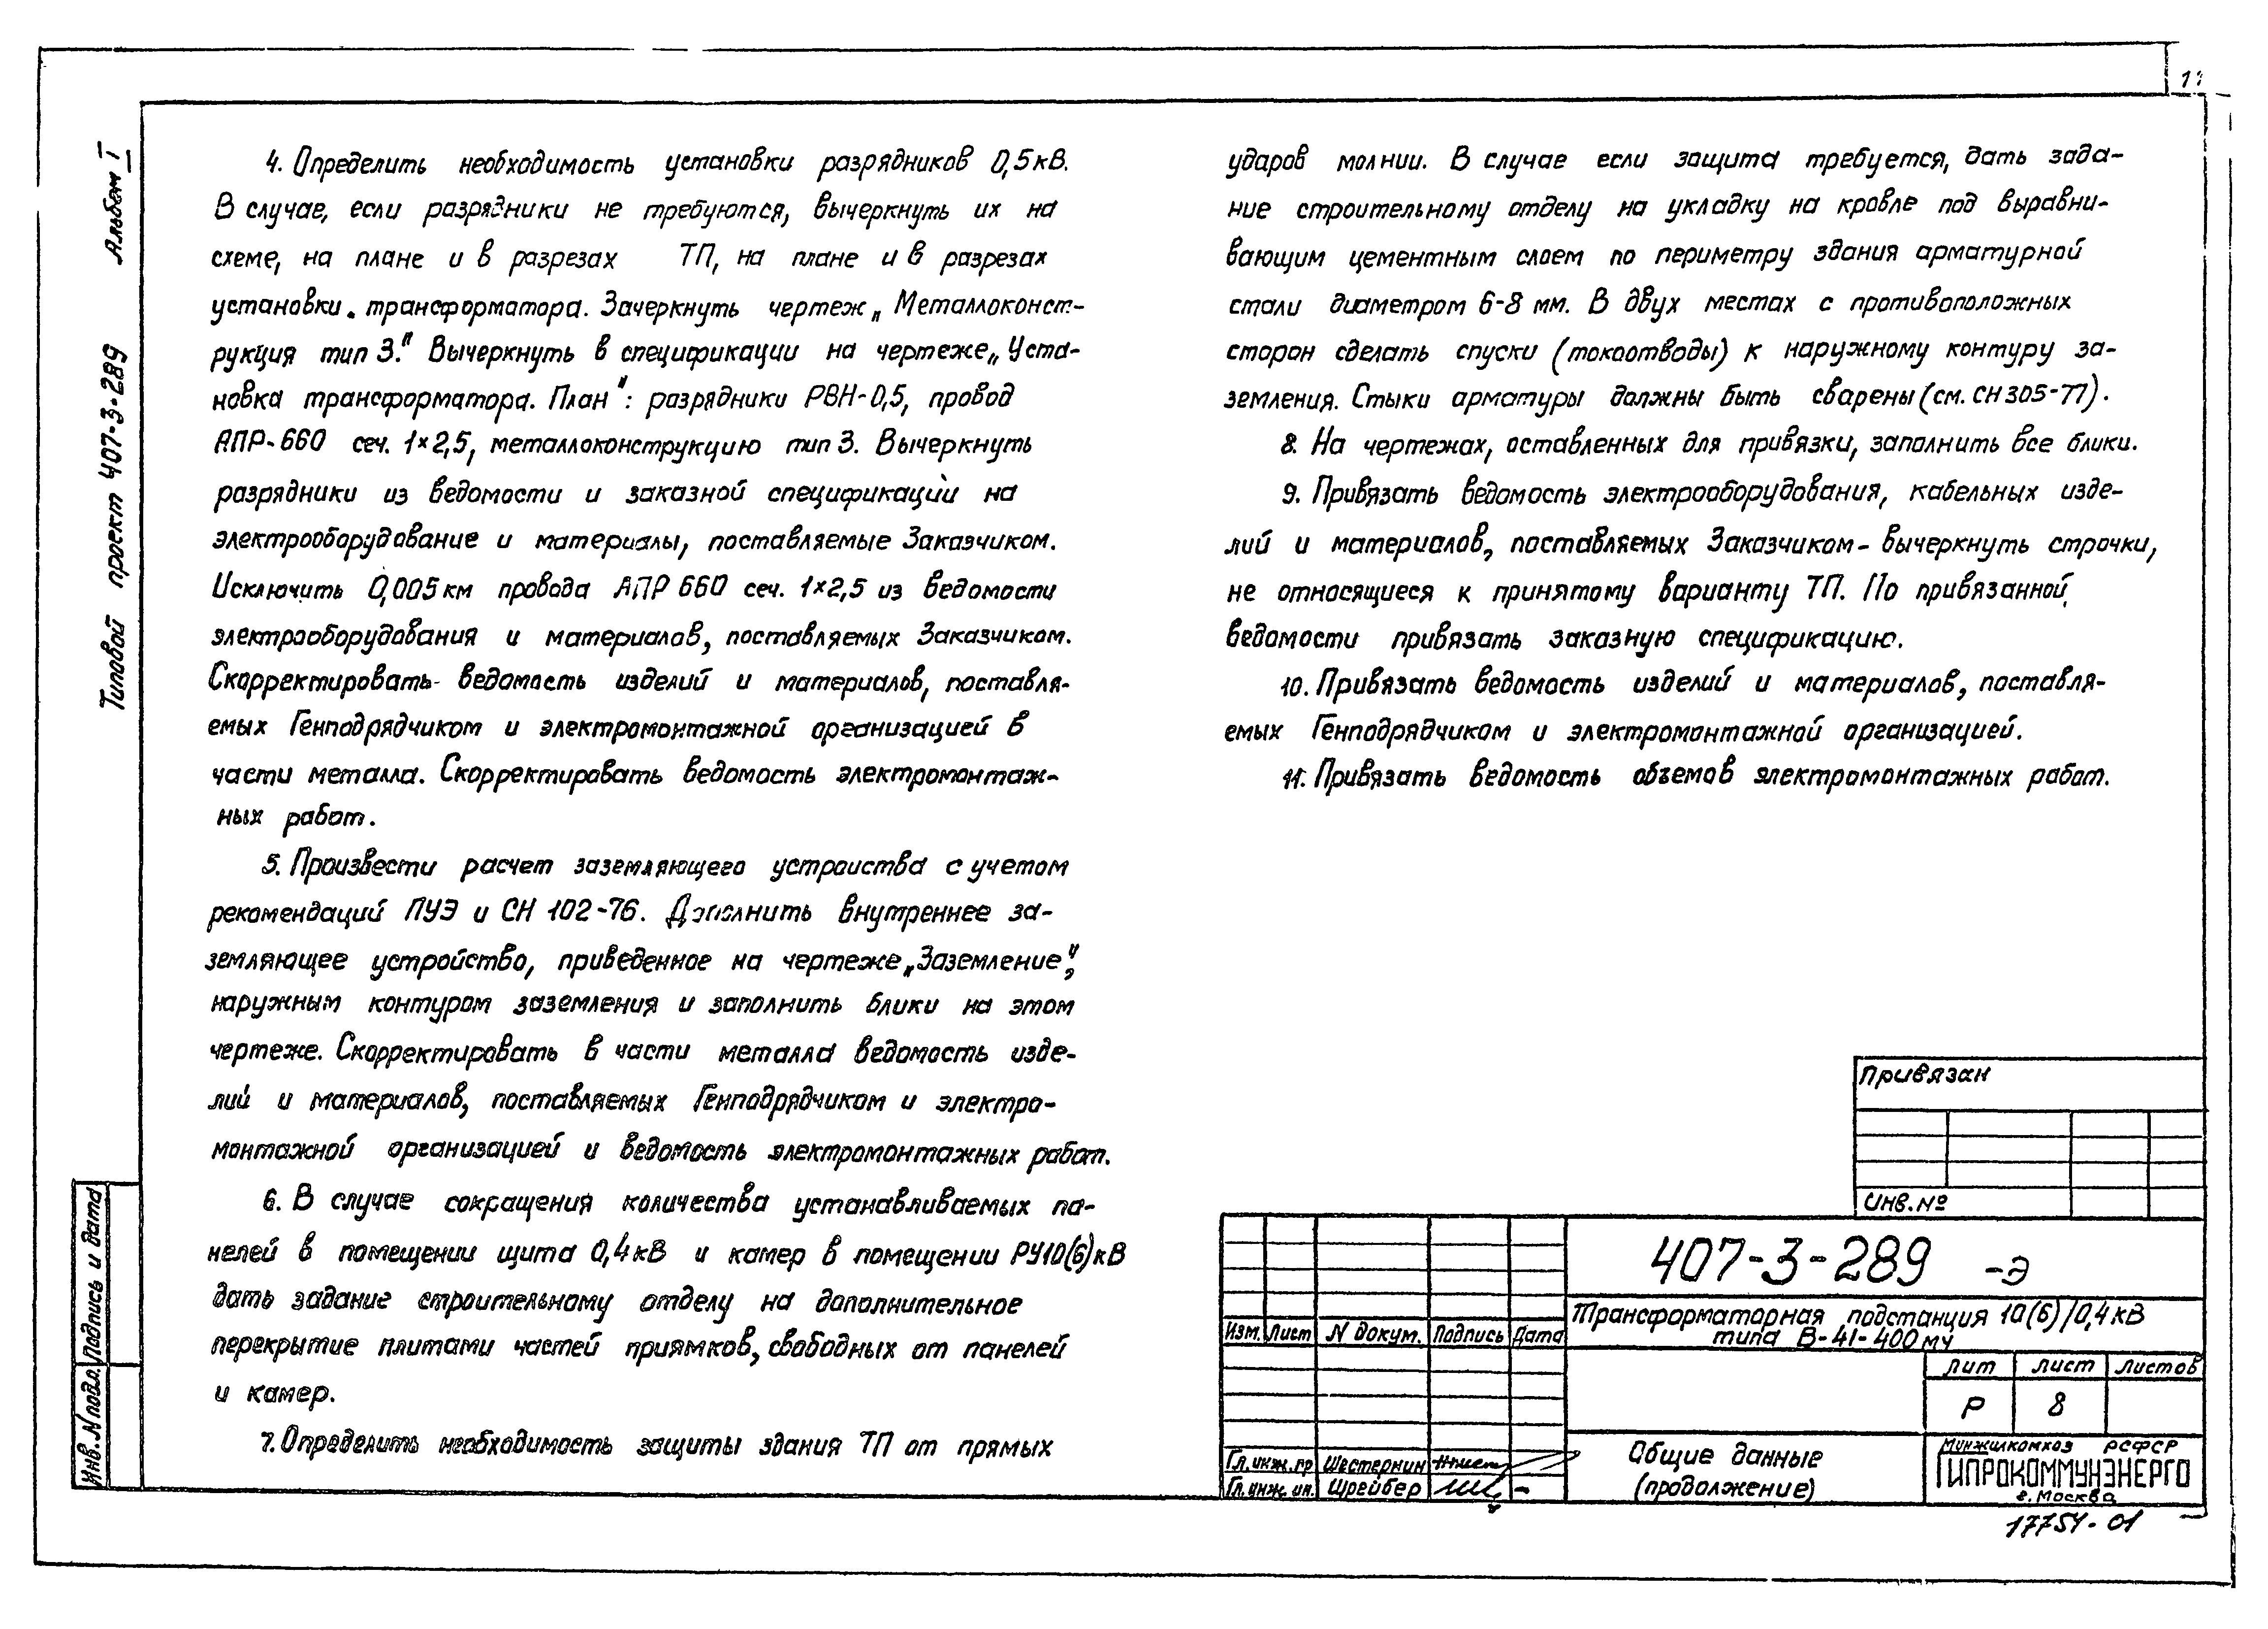 Альбом I
Типовой проект 407-3-289
4. Определить необходимость установки разрядников 0,5кВ.
В случае, если разрядники не требуются, вычеркнуть их на
схеме, на плане и в разрезах ТП, на плане и в разрезах
установки трансформатора. Зачеркнуть чертеж „Металлоконст-
рукция тип 3." Вычеркнуть в спецификации на чертеже „Уста-
новка трансформатора. План": разрядники РВН-0,5, провод
АПР-660 сеч. 1×2,5, металлоконструкцию тип 3. Вычеркнуть
разрядники из ведомости и заказной спецификации на
электрооборудование и материалы, поставляемые Заказчиком.
Исключить 0,005 км провода АПР 660 сеч. 1×2,5 из ведомости
электрооборудования и материалов, поставляемых Заказчиком.
Скорректировать ведомость изделий и материалов, поставля-
емых Генподрядчиком и электромонтажной организацией в
части металла. Скорректировать ведомость электромонтаж-
ных работ.
5. Произвести расчет заземляющего устроиства с учетом
рекомендаций ПУЭ и СН 102-76. Дополнить внутреннее за-
земляющее устройство, приведенное на чертеже „Заземление",
наружным контуром заземления и заполнить блики на этом
чертеже. Скорректировать в части металла ведомость изде-
лий и материалов, поставляемых Генподрядчиком и электро-
монтажной организацией и ведомость электромонтажных работ.
6. В случае сокращения количества устанавливаемых па-
нелей в помещении щита 0,4кВ и камер в помещении РУ10(6)кВ
дать задание строительному отделу на дополнительное
перекрытие плитами частей приямков, свободных от панелей
и камер.
7. Определить необходимость защиты здания ТП от прямых
ударов молнии. В случае если защита требуется, дать зада-
ние строительному отделу на укладку на кровле под выравни-
вающим цементным слоем по периметру здания арматурной
стали диаметром 6-8 мм. В двух местах с противоположных
сторон сделать спуски (токоотводы) к наружному контуру за-
земления. Стыки арматуры должны быть сварены (см. СН 305-77).
8. На чертежах, оставленных для привязки, заполнить все блики.
9. Привязать ведомость электрооборудования, кабельных изде-
лий и материалов, поставляемых Заказчиком - вычеркнуть строчки,
не относящиеся к принятому варианту ТП. По привязанной
ведомости привязать заказную спецификацию.
10. Привязать ведомость изделий и материалов, поставля-
емых Генподрядчиком и электромонтажной организацией.
11. Привязать ведомость объемов электромонтажных работ.
Привязан
Инв. №
407-3-289 -Э
Трансформаторная подстанция 10(6)/0,4кВ
типа В-41-400 му
Изм. Лист N докум. Подпись Дата
Лит Лист Листов
Р 8
Гл. инж. пр Шестернин
Гл. инж. ин. Шрейбер
Общие данные
(продолжение)
Минжилкомхоз РСФСР
ГИПРОКОММУНЭНЕРГО
г. Москва
17754-01
Инв. N подл. Подпись и дата